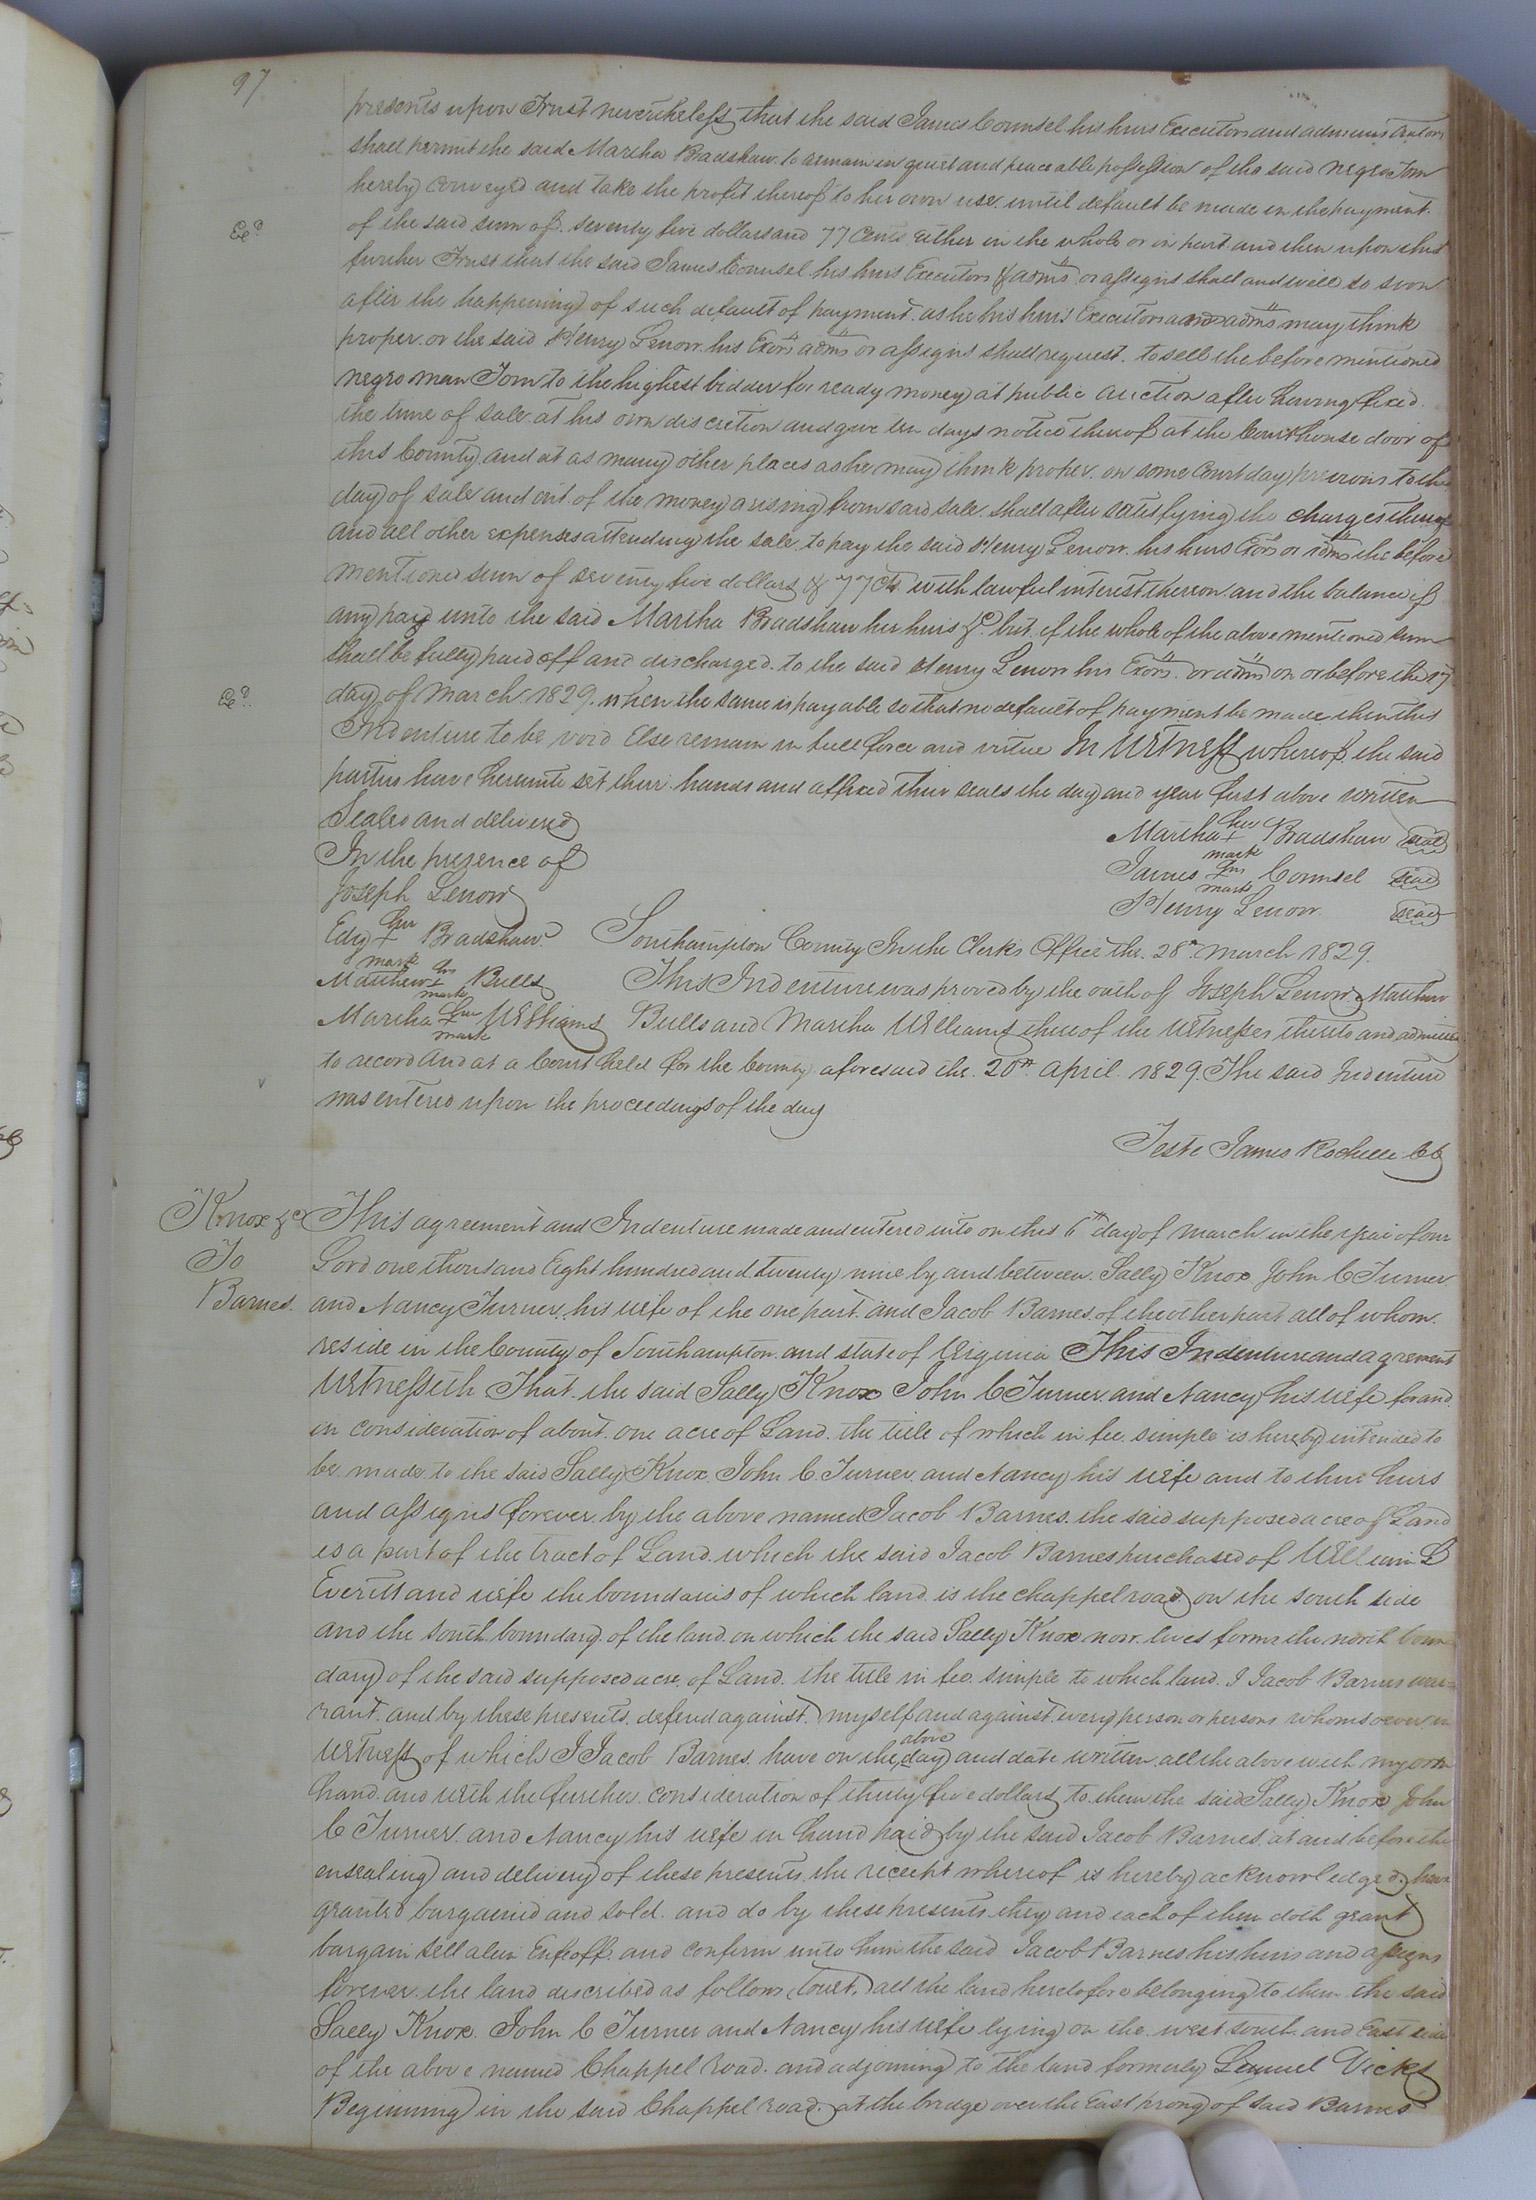 97
presents upon Trust nevertheless that the said James Counsel his heirs Executors and administrators
shall permit the said Martha Bradshaw to remain in quiet and peaceable possession of the said negro Tom
hereby conveyed and take the profit thereof to her own use until default be made in the payment
of the said sum of seventy five dollars and 77 Cents either in the whole or in part and then upon this
further Trust that the said James Counsel his heirs Executors & adms or assigns shall and will so soon
after the happening of such default of payment as he his heirs Executors and adms may think
proper or the said Henry Lenow his Exors adms or assigns shall request to sell the before mentioned
negro man Tom to the highest bidder for ready money at public auction after having fixed
the time of sale at his own discretion and give ten days notice thereof at the Courthouse door of
this County and at as many other places as he may think proper on some Court day previous to the
day of sale and out of the money arising from said sale shall after satisfying the charges thereof
and all other expenses attending the sale to pay the said Henry Lenow his heirs Exors or adms the before
mentioned sum of seventy five dollars & 77 Cts with lawful interest thereon and the balance if
any pay unto the said Martha Bradshaw her heirs &c but if the whole of the above mentioned sum
shall be fully paid off and discharged to the said Henry Lenow his Exors or adms on or before the 17
day of March 1829 when the same is payable so that no default of payment be made then this
Indenture to be void Else remain in full force and virtue In Witness whereof the said
parties have hereunto set their hands and affixed their seals the day and year first above written
Sealed and delivered
In the presence of
Joseph Lenow
Edy her + mark Bradshaw
Matthew his + mark Bulls
Martha her + mark Williams
Martha her + mark Bradshaw seal
James his + mark Counsel seal
Henry Lenow seal
Southampton County In the Clerks Office the 28th March 1829
This Indenture was proved by the oath of Joseph Lenow Matthew
Bulls and Martha Williams three of the Witnesses thereto and admitted
to record And at a Court held for the County aforesaid the 20th April 1829 The said Indenture
was entered upon the proceedings of the day
Teste James Rochelle CC
Knox &c
To
Barnes
This agreement and Indenture made and entered into on this 6th day of March in the year of our
Lord one thousand Eight hundred and twenty nine by and between Sally Knox John C Turner
and Nancy Turner his wife of the one part and Jacob Barnes of the other part all of whom
reside in the County of Southampton and state of Virginia This Indenture and agrement
Witnesseth That the said Sally Knox John C Turner and Nancy his wife for and
in consideration of about one acre of Land the title of which in fee simple is hereby intended to
be made to the said Sally Knox John C. Turner and Nancy his wife and to their heirs
and assigns forever by the above named Jacob Barnes the said supposed acre of Land
is a part of the tract of Land which the said Jacob Barnes purchased of William B
Everitt and wife the boundaries of which land is the chappel road on the south side
and the south boundary of the land on which the said Sally Knox now lives forms the north boun
dary of the said supposed acre of Land the title in fee simple to which land I Jacob Barnes war=
rant and by these presents defend against myself and against every person or persons whomsoever in
Witness of which I Jacob Barnes have on the above day and date written all the above with my own
hand and with the further consideration of thirty five dollars to them the said Sally Knox John
C Turner and Nancy his wife in hand paid by the said Jacob Barnes at and before the
ensealing and delivery of these presents the receipt whereof is hereby acknowledged have
granted bargained and sold and do by these presents they and each of them doth grant
bargain sell alien Enfeoff and confirm unto him the said Jacob Barnes his heirs and assigns
forever the land described as follows (towit) all the land heretofore belonging to them the said
Sally Knox John C Turner and Nancy his wife lying on the west south and East side
of the above named Chappel Road and adjoining to the land formerly Lemuel Vicks
Beginning in the said Chappel road at the bridge over the East prong of said Barnes